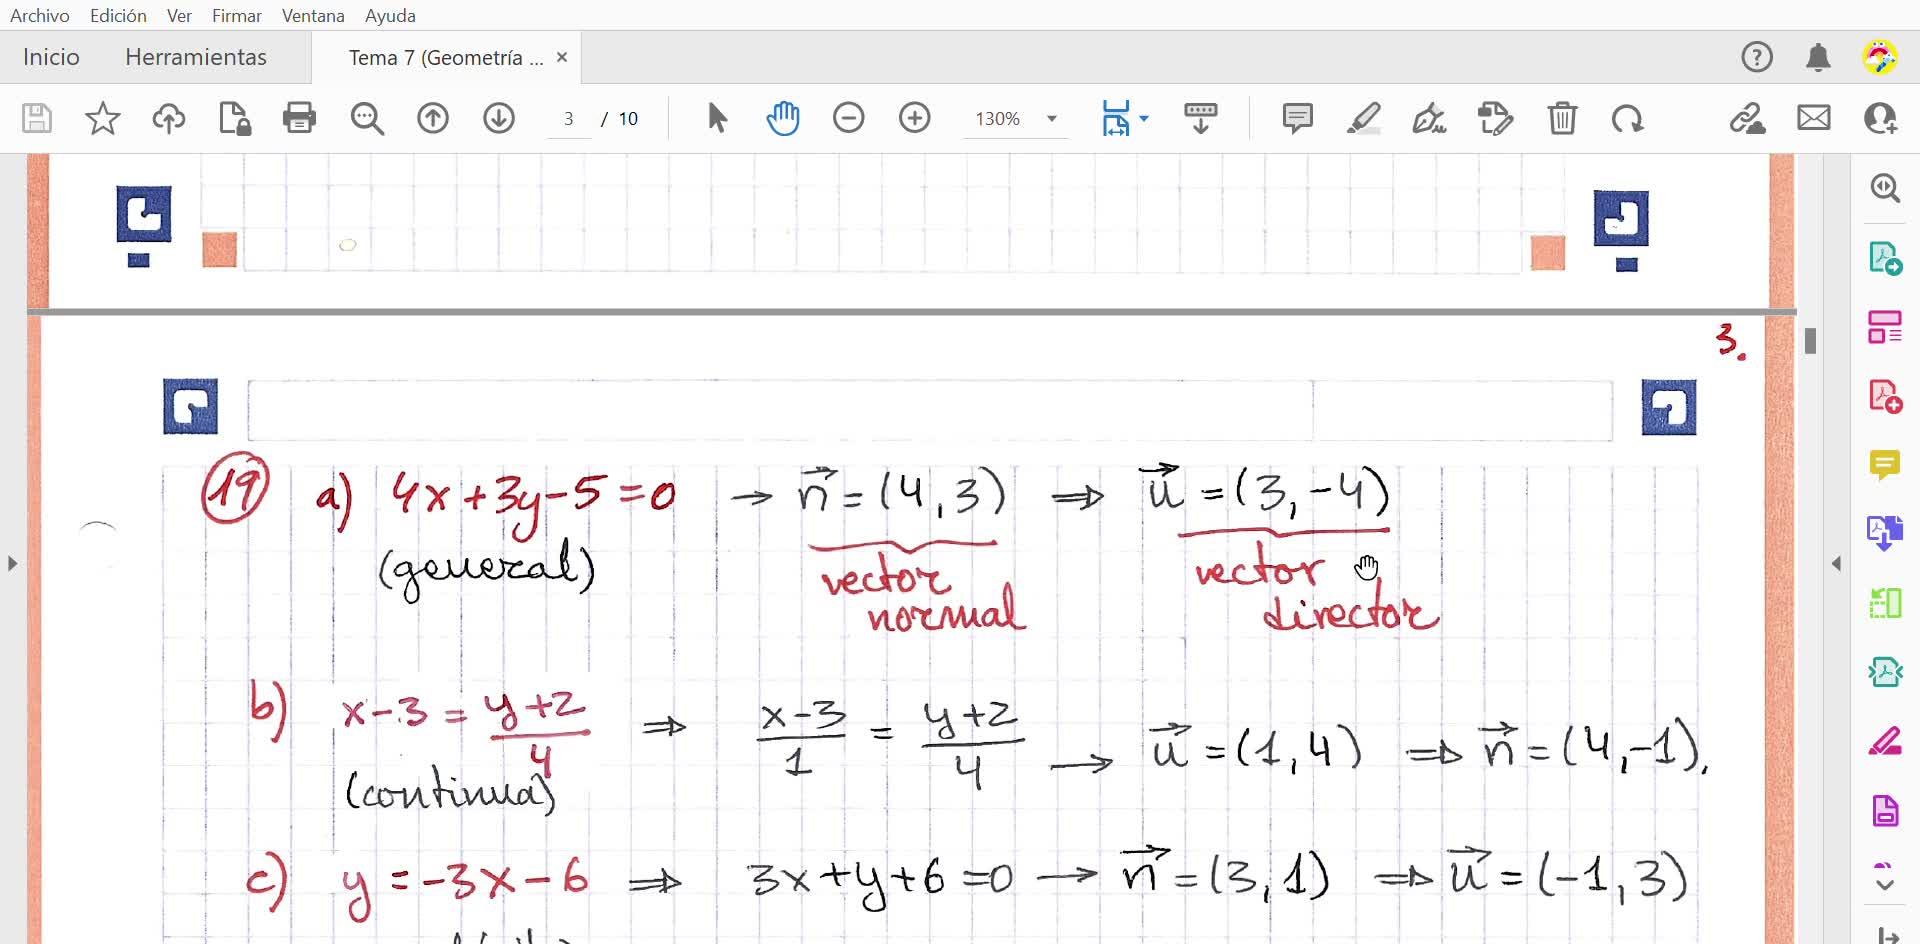 Archivo Edición Ver Firmar Ventana Ayuda
Inicio Herramientas Tema 7 (Geometría ... ×
3 / 10 130%
3.
19 a) 4x+3y-5=0 → n⃗=(4,3) ⇒ u⃗=(3,-4)
(general) vector normal vector director
b) x-3 = (y+2)/4 ⇒ (x-3)/1 = (y+2)/4 → u⃗=(1,4) ⇒ n⃗=(4,-1).
(continua)
c) y=-3x-6 ⇒ 3x+y+6=0 → n⃗=(3,1) ⇒ u⃗=(-1,3)